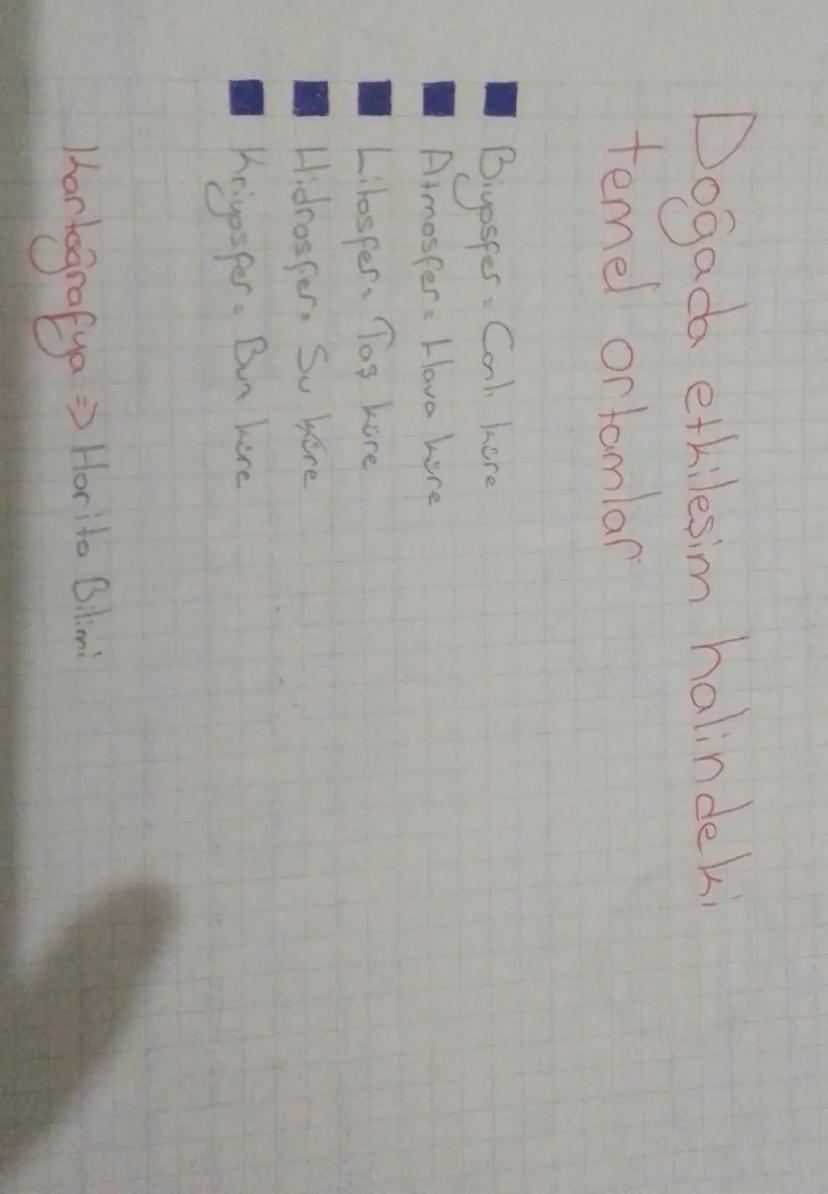 Doğada etkileşim halindeki
temel ortamlar
Biyosfer = Canlı küre
Atmosfer = Hava küre
Litosfer = Taş küre
Hidrosfer = Su küre
Kriyosfer = Buz küre
Kartoğrafya => Harita Bilimi